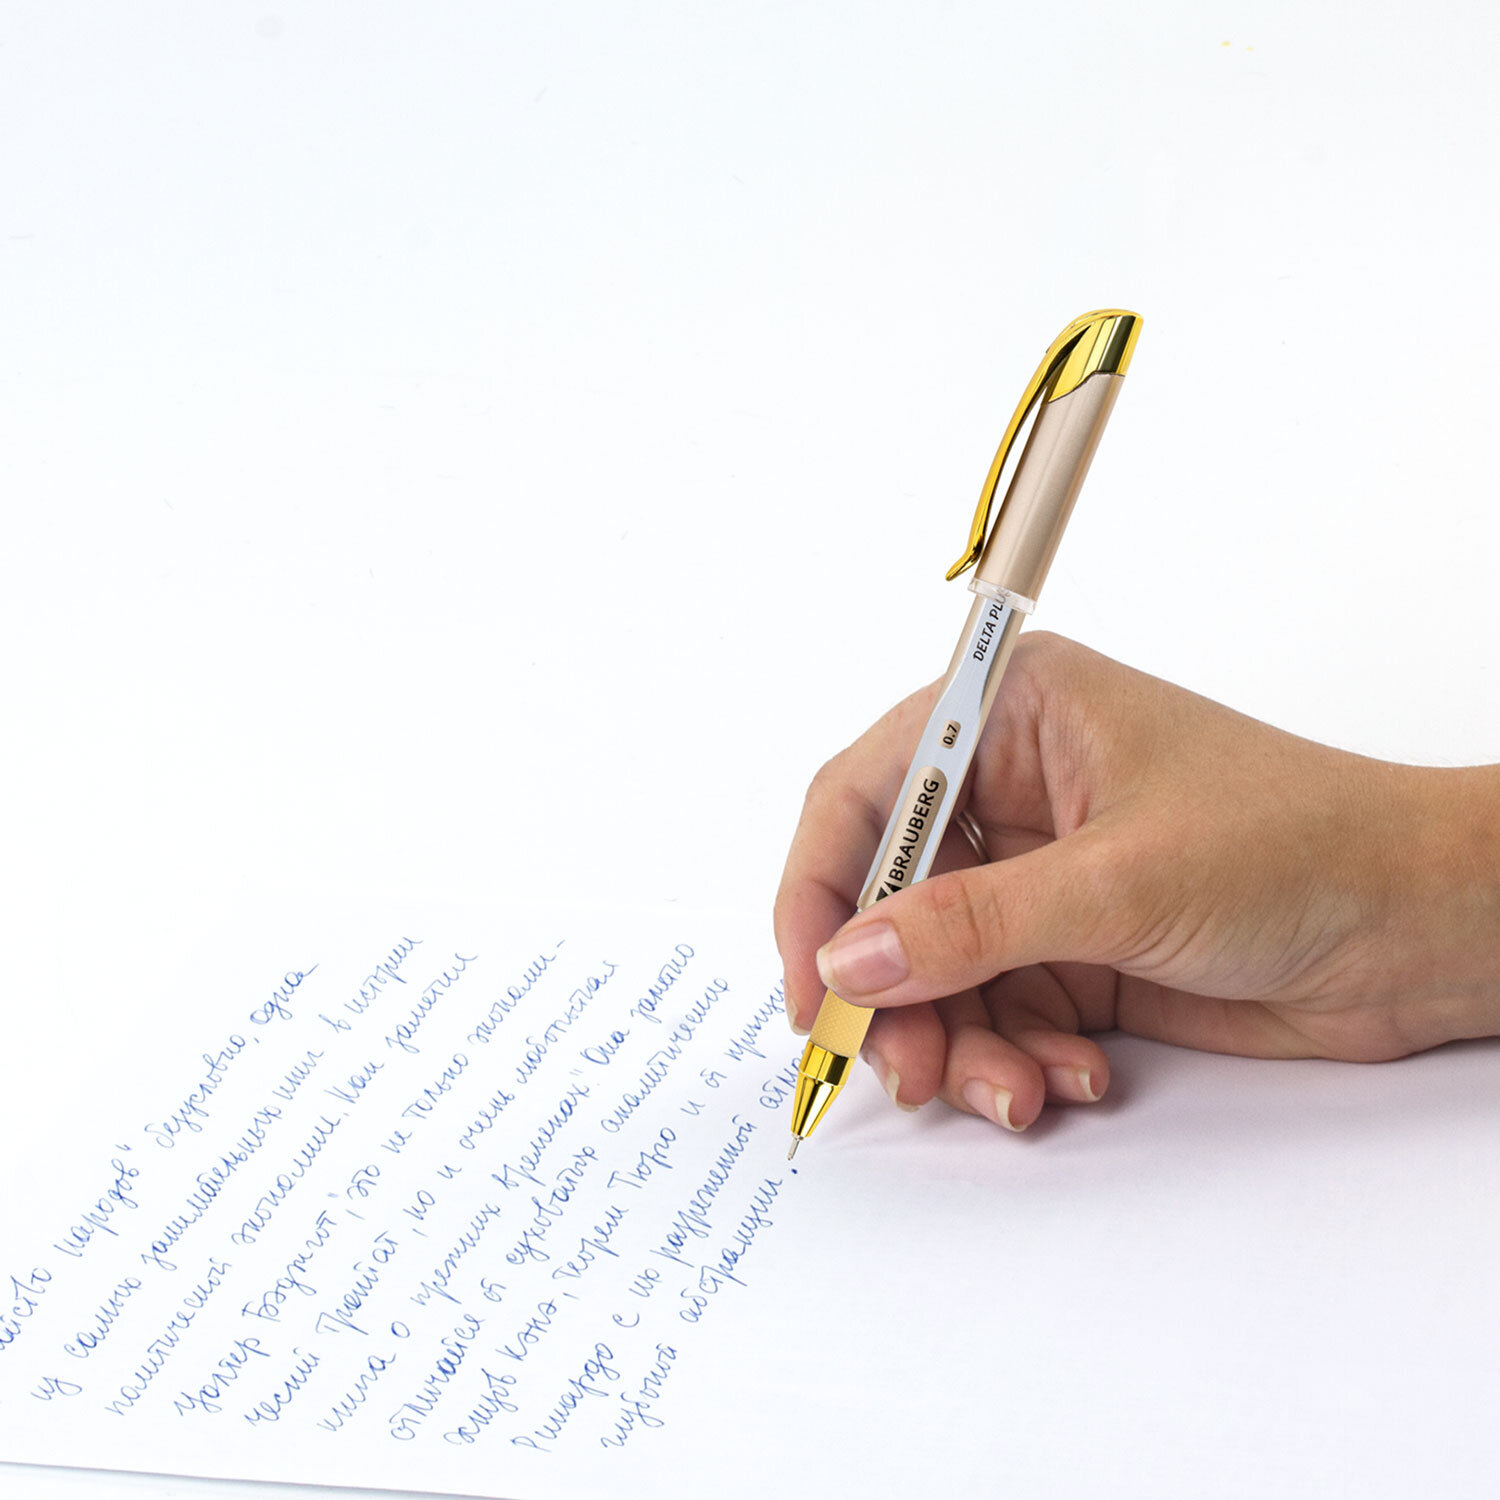 DELTA PLUS
0.7
BRAUBERG
народов" безусловно, одна
из самых занимательных книг в истории
политической экономии. Как заметил
Уолтер Бэджгот, "это не только экономи-
ческий трактат, но и очень любопытная
книга о прежних временах". Она заметно
отличается от суховатых аналитических
Кэнэ, Тюрго и от
Рикардо с их разреженной
глубокой абстракции.